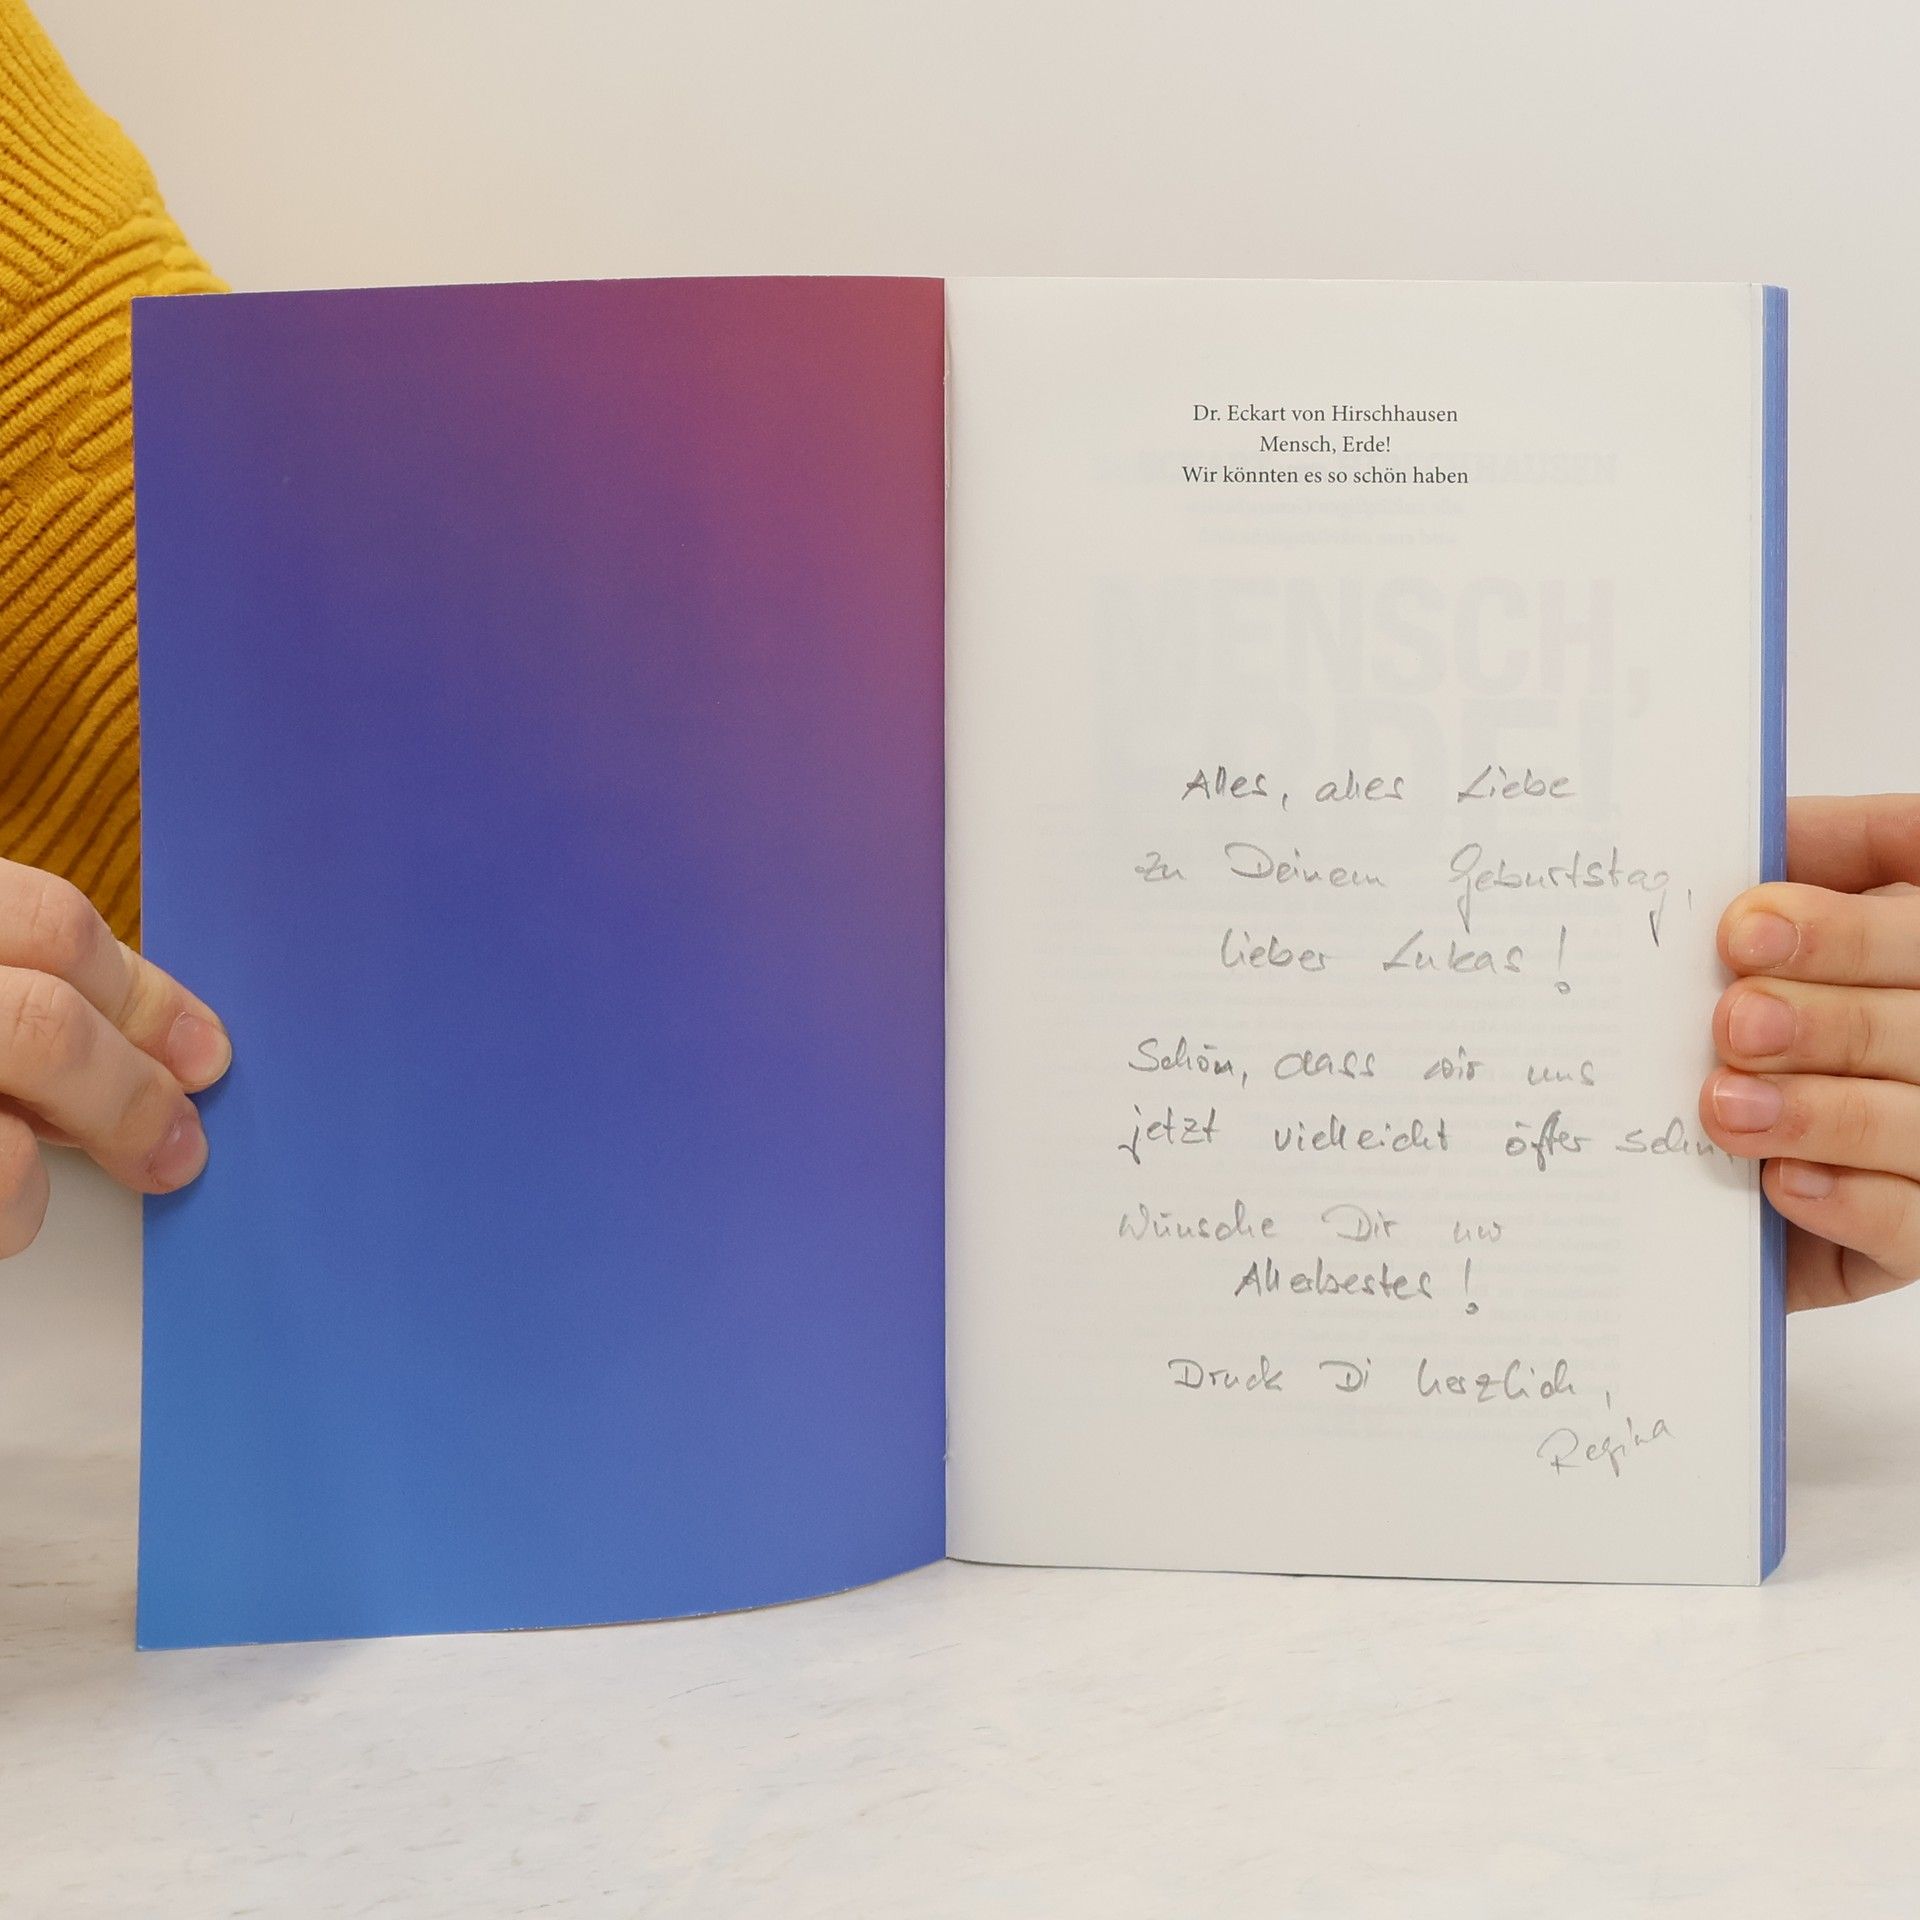 Dr. Eckart von Hirschhausen
Mensch, Erde!
Wir könnten es so schön haben
MENSCH,
Alles, alles Liebe
zu Deinem Geburtstag,
lieber Lukas!
Schön, dass wir uns
jetzt vielleicht öfter sehn,
Wünsche Dir nur
Allerbestes!
Druck Di herzlich,
Regina